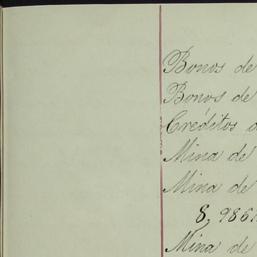 Bonos de
Bonos de
Créditos
Mina de
Mina de
8,986
Mina de